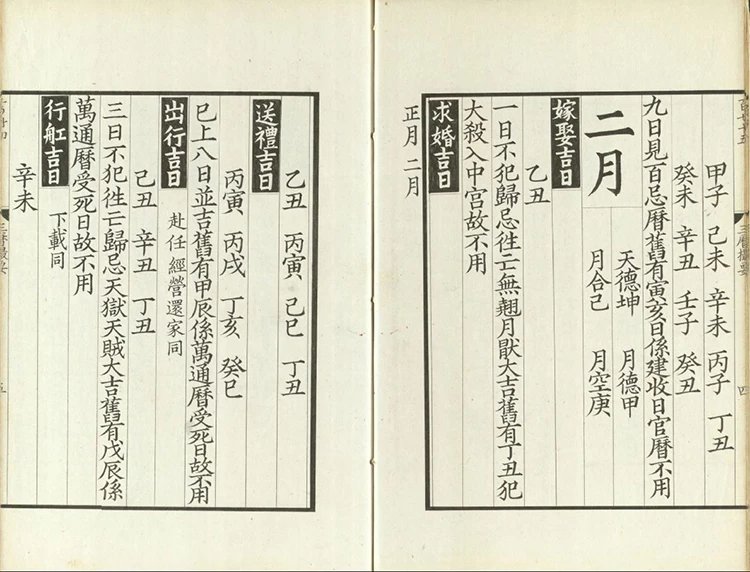 三曆撮要
四
甲子 己未 辛未 丙子 丁丑
癸未 辛丑 壬子 癸丑
九日見百忌曆舊有寅亥日係建收日官曆不用
二月
天德坤 月德甲
月合己 月空庚
嫁娶吉日
乙丑
一日不犯歸忌徃亡無翹月厭大吉舊有丁丑犯
大殺入中宫故不用
求婚吉日
正月 二月
乙丑 丙寅 己巳 丁丑
送禮吉日
丙寅 丙戌 丁亥 癸巳
巳上八日並吉舊有甲辰係萬通曆受死日故不用
出行吉日 赴任經營還家同
己丑 辛丑 丁丑
三日不犯徃亡歸忌天獄天賊大吉舊有戊辰係
萬通曆受死日故不用
行舡吉日 下載同
辛未
三曆撮要
五